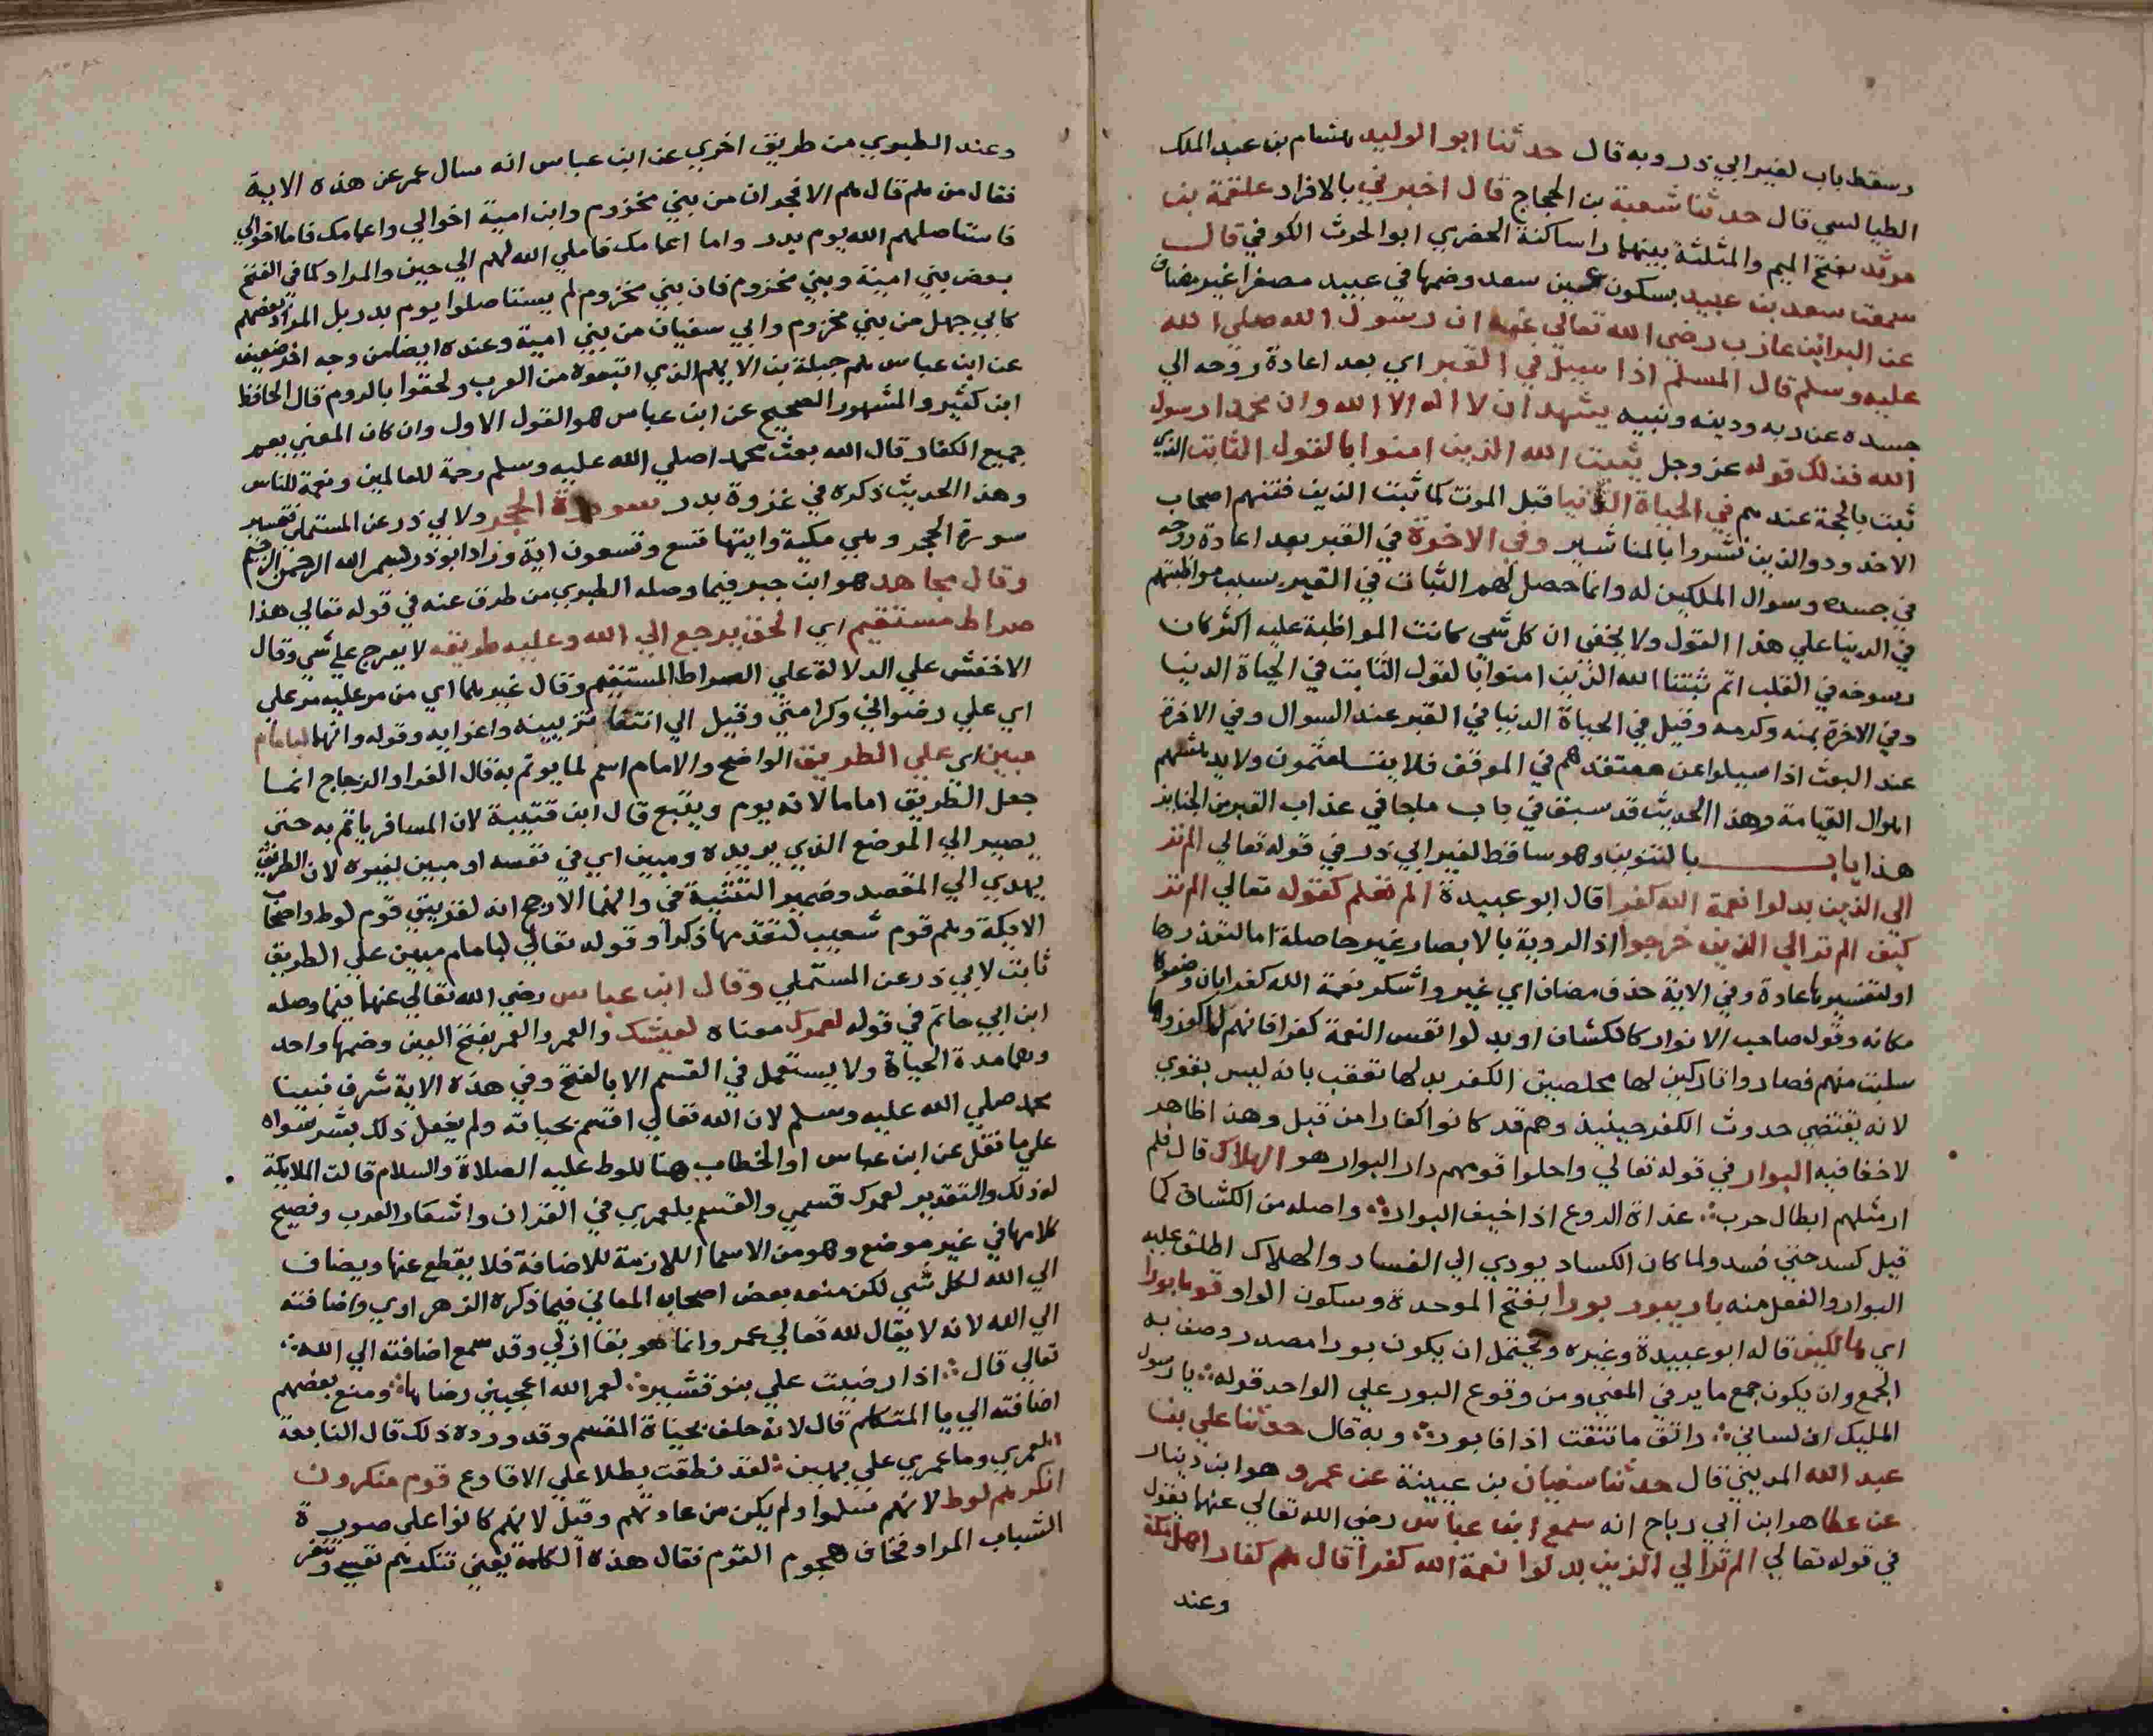 وسقط باب لغير ابي ذر وبه قال حدثنا ابو الوليد هشام بن عبد الملك
الطيالسي قال حدثنا شعبة بن الحجاج قال اخبرني بالافراد علقمة بن
مرثد بفتح الميم والمثلثة بينهما راساكنة الحضري ابو الحرث الكوفي قال
سمعت سعد بن عبيد بسكون عين سعد وضمها في عبيد مصغرا غير مضاف
عن البرا بن عازب رضي الله تعالي عنه ان رسول الله صلي الله
عليه وسلم قال المسلم اذا سيل في القبر اي بعد اعادة روحه الي
جسده عن ربه ودينه ونبيه يشهد ان لا اله الا الله وان محمدا رسول
الله فذلك قوله عز وجل يثبت الله الذين امنوا بالقول الثابت الذي
ثبت بالحجة عندهم في الحياة الدنيا قبل الموت كما ثبت الذين فتنهم اصحاب
الاخدود والذين نشروا بالمناشير وفي الاخرة في القبر بعد اعادة روحه
في جسده وسوال الملكين له وانما حصل لهم الثبات في القبر بسبب مواظبتهم
في الدنيا علي هذا القول ولا يخفى ان كل شي كانت المواظبة عليه اكثر كان
رسوخه في القلب اتم ثبتنا الله الذين امنوا بالقول الثابت في الحياة الدنيا
وفي الاخرة بمنه وكرمه وقيل في الحياة الدنيا في القبر عند السوال وفي الاخرة
عند البعث اذا سيلوا عن معتقدهم في الموقف فلا يتلعثمون ولا يدهشهم
اهوال القيامة وهذا الحديث قد سبق في باب ماجا في عذاب القبر من الجنايز
هذا باب بالتنوين وهو ساقط لغير ابي ذر في قوله تعالي الم تر
الي الذين بدلوا نعمة الله كفرا قال ابو عبيدة الم تعلم كقوله تعالي الم تر
كيف الم تر الي الذين خرجوا اذ الروية بالابصار غير حاصلة اما لتعذرها
او لتعسيرها عادة وفي الاية حذف مضاف اي غيروا شكر نعمة الله كفرا بان وضعوه
مكانه وقوله صاحب الانوار كالكشاف او بدلوا نفس النعمة كفرا فانهم لما كفروها
سلبت منهم فصاروا تاركين لها محلصين الكفر بدلها تعقب بانه ليس بقوي
لانه يقتضي حدوث الكفر حينيذ وهم قد كانوا كفارا من قبل وهذا ظاهر
لا خفا فيه البوار في قوله تعالي واحلوا قومهم دار البوار هو الهلاك قال فلم
ار مثلهم ابطال حرب ؞ غداة الروع اذا خيف البوار ؞ واصله من الكشاف كما
قيل كسد حتي فسد ولما كان الكساد يودي الي الفساد والهلاك اطلق عليه
البوار والفعل منه بار يبور بورا بفتح الموحدة وسكون الواو قوما بورا
اي هالكين قاله ابو عبيدة وغيره ويحتمل ان يكون بورا مصدر وصف به
الجمع وان يكون جمع ماير في المعني ومن وقوع البور علي الواحد قوله ؞ يا رسول
المليك ان لساني ؞ راتق ما فتقت اذ انا بور ؞ وبه قال حدثنا علي بن
عبد الله المديني قال حدثنا سفيان بن عيينة عن عمرو هو ابن دينار
عن عطا هو ابن ابي رباح انه سمع ابن عباس رضي الله تعالي عنهما يقول
في قوله تعالي الم تر الي الذين بدلوا نعمة الله كفرا قال هم كفار اهل مكة
وعند
وعند الطبري من طريق اخري عن ابن عباس انه سال عمر عن هذه الاية
فقال من هم قال هم الافجران من بني مخزوم وابن امية اخوالي واعمامك فاما اخوالي
فاستاصلهم الله يوم بدر واما اعمامك فاملي الله لهم الي حين والمراد كما في الفتح
بعض بني امية وبني مخزوم فان بني مخزوم لم يستاصلوا يوم بدر بل المراد بعضهم
كابي جهل من بني مخزوم وابي سفيان من بني امية وعنده ايضا من وجه اخر ضعيف
عن ابن عباس هم جبلة بن الايهم الذي اتبعوه من العرب ولحقوا بالروم قال الحافظ
ابن كثير والمشهور الصحيح عن ابن عباس هو القول الاول وان كان المعني يعم
جميع الكفار قال الله بعث محمدا صلي الله عليه وسلم رحمة للعالمين ونعمة للناس
وهذا الحديث ذكره في غزوة بدر سورة الحجر ولابي ذر عن المستملي تفسير
سورة الحجر وهي مكية وايتها تسع وتسعون اية وزاد ابو ذر بسم الله الرحمن الرحيم
وقال مجاهد هو ابن جبر فيما وصله الطبري من طرق عنه في قوله تعالي هذا
صراط مستقيم اي الحق يرجع الي الله وعليه طريقه لا يعرج علي شي وقال
الاخفش علي الدلالة علي الصراط المستقيم وقال غيرهما اي من مر عليه مر علي
اي علي رضواني وكرامتي وقيل الي انتفا تزيينه واغوايه وقوله وانهما لبامام
مبين اي علي الطريق الواضح والامام اسم لما يوتم به قال الفرا والزجاج انما
جعل الطريق اماما لانه يوم ويتبع قال ابن قتيبة لان المسافر ياتم به حتي
يصير الي الموضع الذي يريده ومبين اي في نفسه او مبين لغيره لان الطريق
يهدي الي المقصد وضمير التثنية في وانهما الارجح انه لقريتي قوم لوط واصحاب
الايكة وهم قوم شعيب لتقدمها ذكرا وقوله تعالي لبامام مبين علي الطريق
ثابت لابي ذر عن المستملي وقال ابن عباس رضي الله تعالي عنهما فيما وصله
ابن ابي حاتم في قوله لعمرك معناه لعيشك والعمر والعمر بفتح العين وضمها واحد
وهما مدة الحياة ولا يستعمل في القسم الا بالفتح وفي هذه الاية شرف نبينا
محمد صلي الله عليه وسلم لان الله تعالي اقسم بحياته ولم يفعل ذلك بشر سواه
علي ما نقل عن ابن عباس او الخطاب هنا للوط عليه الصلاة والسلام قالت الملايكة
له ذلك والتقدير لعمرك قسمي والقسم بلعمري في القران واشعار العرب وفصيح
كلامها في غير موضع وهو من الاسما اللازمة للاضافة فلا يقطع عنها ويضاف
الي الله لكل شي لكن منعه بعض اصحاب المعاني فيما ذكره الزهراوي واضافته
الي الله لانه لا يقال لله تعالي عمر وانما هو بقا ازلي وقد سمع اضافته الي الله ؞
تعالي قال ؞ اذا رضيت علي بنو قشير ؞ لعمر الله اعجبني رضاها ؞ ومنع بعضهم
اضافته الي يا المتكلم قال لانه حلف بحياة المقسم وقد ورده ذلك قال النابغة
لعمري وما عمري علي بهين ؞ لقد نطقت بطلا علي الاقارع قوم منكرون
انكرهم لوط لانهم سلموا ولم يكن من عادتهم وقيل لانهم كانوا علي صورة
الشباب المراد فخاف هجوم القوم فقال هذه الكلمة يعني تنكرهم نفسي وتنفر